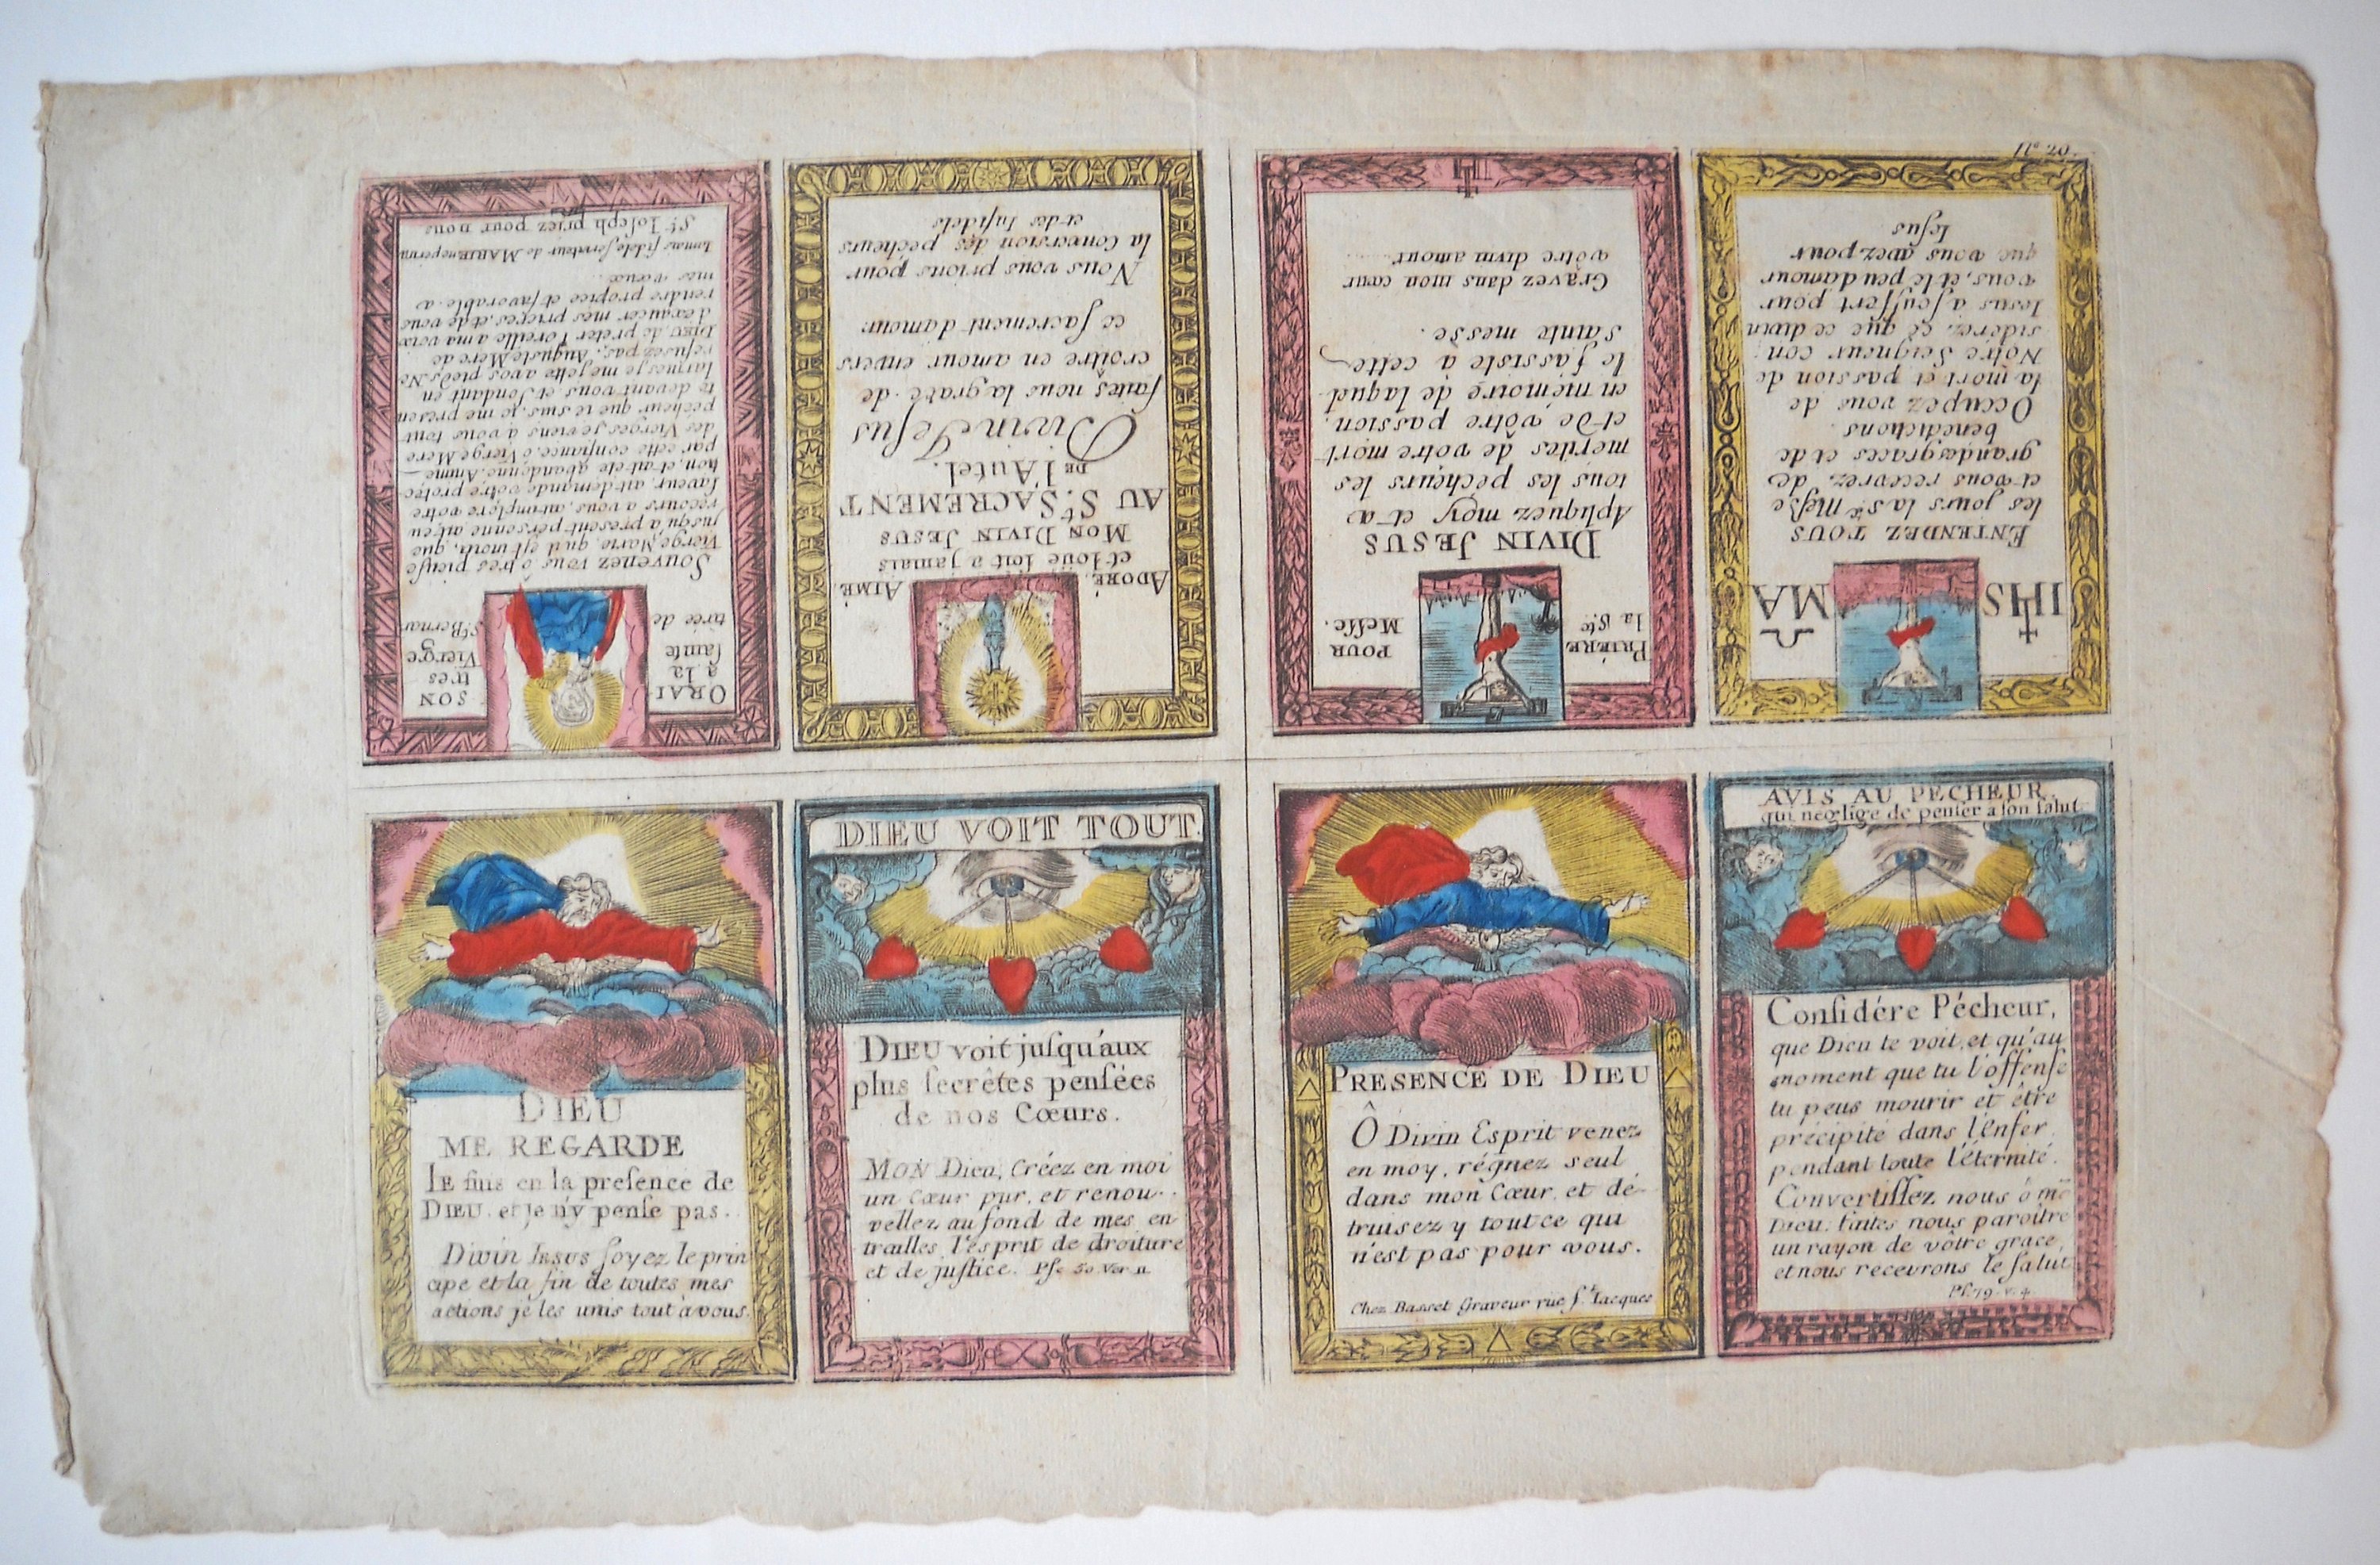 ORAI SON
à la tres
sainte Vierge
tirée de St. Bernar
Souvenez vous ô tres pieuſe
Vierge Marie, qu'il est inoui, que
juſqu'à present personne ait eu
recours a vous, ait imploré votre
faveur, ait demandé vôtre protec-
tion, et ait été abandonné. Animé
par cette confiance, ô Vierge Mere
des Vierges je viens à vous tout
pécheur que je suis, je me présen
te devant vous, et fondant en
larmes je me jette a vos pieds. Ne
refusez pas, Auguste Mere de
DIEU, de prêter l'oreille a ma voix
d'exaucer mes prieres, et de vous
rendre propice et favorable a
mes vœux.
Jamais fidele ſerviteur de MARIE ne perira
St. Ioſeph priez pour nous
ADORÉ, AIMÉ,
et loüé ſoit a jamais
MON DIVIN JESUS
AU St. SACREMENT
DE l'Autel.
Divin Jeſus
faites nous la grace de
croitre en amour envers
ce ſacrement d'amour
Nous vous prions pour
la Conversion des pécheurs
et des Infidels
PRIÉRE POUR
la Ste. Meſſe.
DIVIN JESUS
Apliquez moy et a
tous les pécheurs les
merites de votre mort
et de vôtre passion,
en mémoire de laquel
le j'assiste à cette
sainte messe.
Gravez dans mon cœur
vôtre divin amour
IHS MA
ENTENDEZ TOUS
les jours la ste. Meſſe
et vous recevrez de
grandes graces et de
benedictions.
Occupez vous de
la mort et passion de
Notre Seigneur con:
siderez, ce que ce divin
Jesus a ſouffert pour
vous, et le peu d'amour
que vous avez pour
Ieſus
DIEU
ME REGARDE
IE ſuis en la preſence de
DIEU. et je n'y penſe pas.
Divin Iesus ſoyez le prin
cipe et la fin de toutes mes
actions je les unis tout à vous.
DIEU VOIT TOUT.
DIEU voit juſqu'aux
plus ſecrêtes penſées
de nos Cœurs.
MON Dieu, Créez en moi
un Cœur pur, et renou-
vellez au fond de mes en
trailles l'esprit de droiture
et de juſtice. Pſe 50 Ver 11
PRESENCE DE DIEU
Ô Divin Esprit venez
en moy, régnez seul
dans mon Cœur, et dé-
truisez y tout ce qui
n'est pas pour vous.
Chez Basset Graveur rue St Iacques
AVIS AU PECHEUR,
qui néglige de penſer a ſon ſalut
Conſidére Pécheur,
que Dieu te voit, et qu'au
moment que tu l'offenſe
tu peus mourir et être
précipité dans l'Enfer
pendant toute l'éternité.
Convertiſſez nous ô mō
Dieu. faites nous paroître
un rayon de vôtre grace,
et nous recevrons le ſalut
Pſ. 79. v. 4.